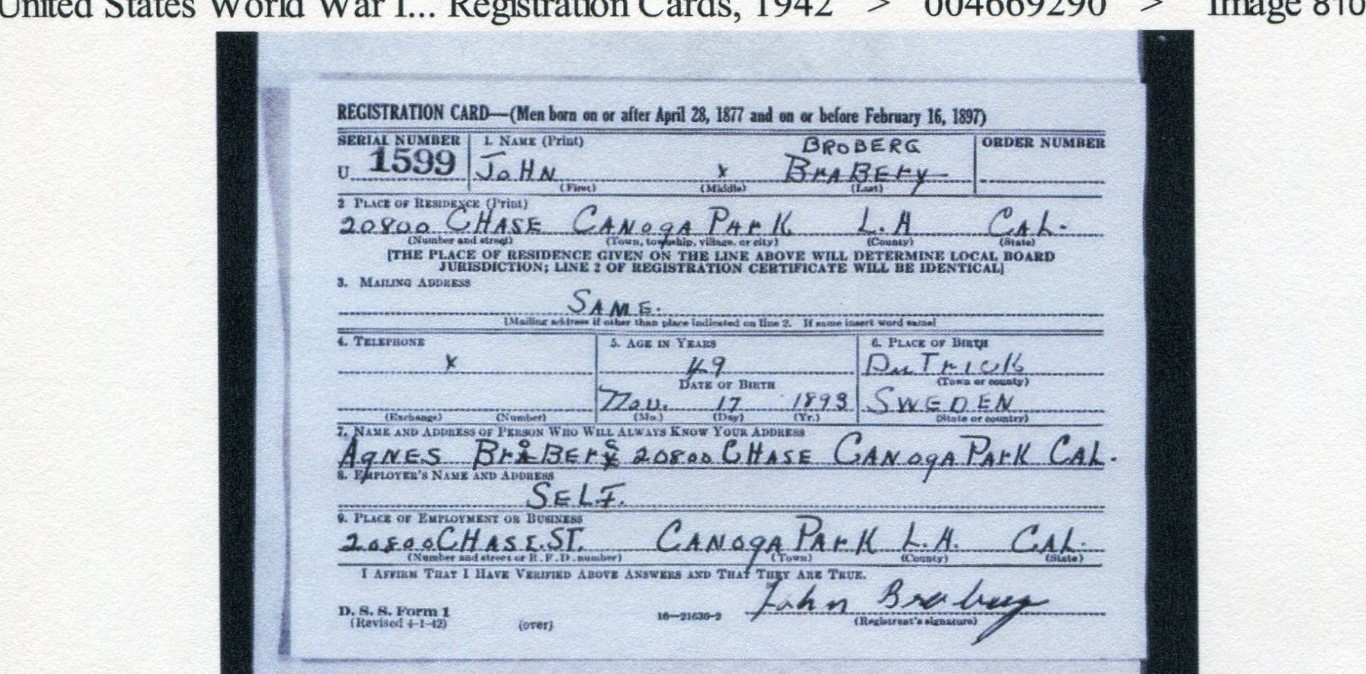 United States World War I... Registration Cards, 1942 > 004669290 > Image 810
REGISTRATION CARD—(Men born on or after April 28, 1877 and on or before February 16, 1897)
SERIAL NUMBER 1. NAME (Print) BROBERG ORDER NUMBER
U 1599 JOHN x BRABERY
(First) (Middle) (Last)
2 PLACE OF RESIDENCE (Print)
20800 CHASE CANOGA PARK L.A CAL.
(Number and street) (Town, township, village, or city) (County) (State)
[THE PLACE OF RESIDENCE GIVEN ON THE LINE ABOVE WILL DETERMINE LOCAL BOARD
JURISDICTION; LINE 2 OF REGISTRATION CERTIFICATE WILL BE IDENTICAL]
3. MAILING ADDRESS
SAME.
[Mailing address if other than place indicated on line 2. If same insert word same]
4. TELEPHONE 5. AGE IN YEARS 6. PLACE OF BIRTH
x 49
DATE OF BIRTH (Town or county)
Nov. 17 1893 SWEDEN
(Exchange) (Number) (Mo.) (Day) (Yr.) (State or country)
7. NAME AND ADDRESS OF PERSON WHO WILL ALWAYS KNOW YOUR ADDRESS
AGNES 20800 CHASE CANOGA PARK CAL.
8. EMPLOYER'S NAME AND ADDRESS
SELF.
9. PLACE OF EMPLOYMENT OR BUSINESS
20800 CHASE. ST. CANOGA PARK L.A. CAL.
(Number and street or R. F. D. number) (Town) (County) (State)
I AFFIRM THAT I HAVE VERIFIED ABOVE ANSWERS AND THAT THEY ARE TRUE.
John
D. S. S. Form 1
(Revised 4-1-42) (over) 16—21630-2 (Registrant's signature)